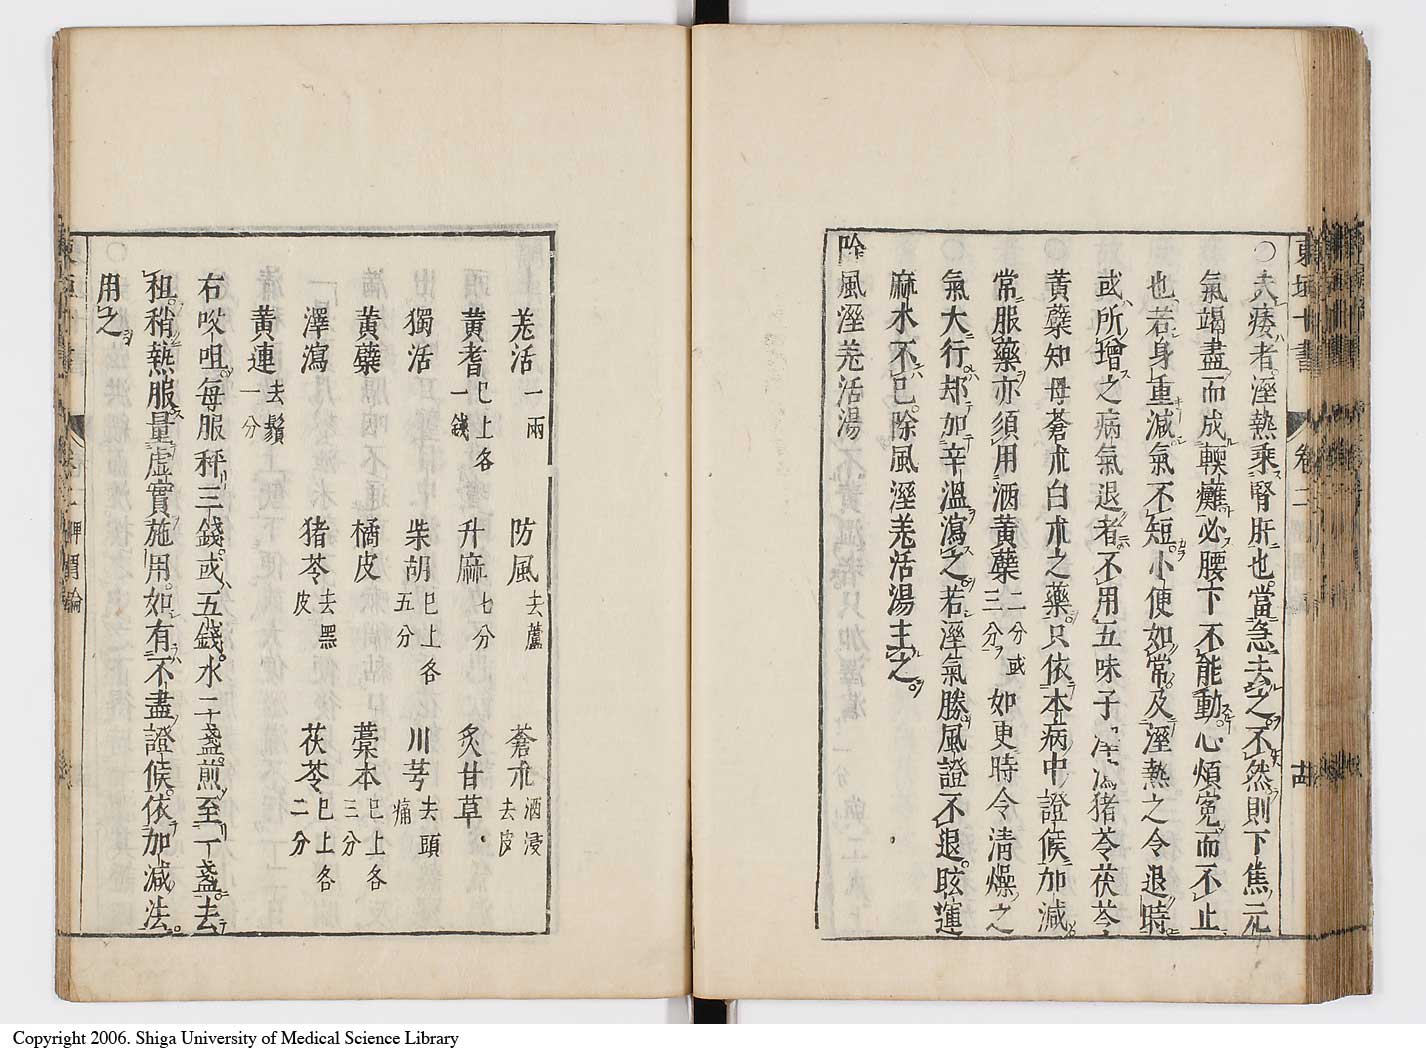 東垣十書 卷二 古
○夫痿者溼熱乘腎肝也當急去之不然則下焦元
氣竭盡而成軟癱必腰下不能動心煩寃而不止
也若身重減氣不短小便如常及溼熱之令退時
或所增之病氣退者不用五味子澤瀉猪苓茯苓
黃蘗知母蒼朮白朮之藥只依本病中證候加減
常服藥亦須用酒黃蘗二分或三分如更時令清燥之
氣大行却加辛溫瀉之若溼氣勝風證不退眩運
麻木不已除風溼羗活湯主之
除風溼羗活湯
羗活一兩 防風去蘆 蒼朮酒浸去皮
黃耆已上各一錢 升麻七分 炙甘草
獨活 柴胡已上各五分 川芎去頭痛
黃蘗 橘皮 藁本已上各三分
澤瀉 猪苓去黑皮 茯苓已上各二分
黃連去鬚一分
右㕮咀每服秤三錢或五錢水二盞煎至一盞去
粗稍熱服量虛實施用如有不盡證候依加減法
用之
脾胃論
Copyright 2006. Shiga University of Medical Science Library